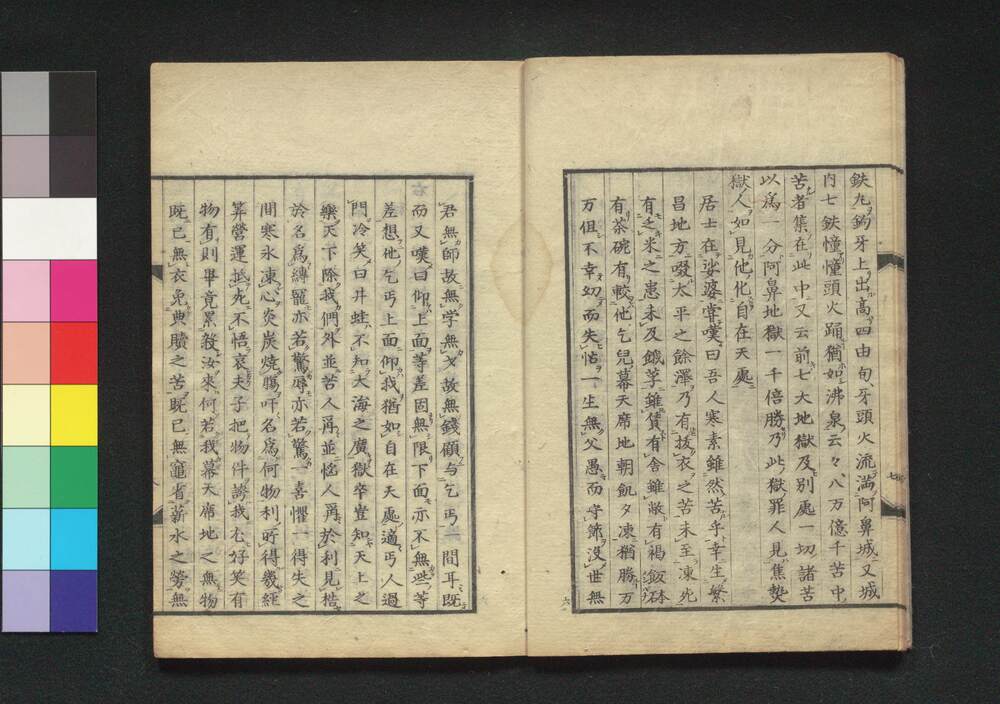 鉄丸鉤牙上出高四由旬牙頭火流満阿鼻城又城
内七鉄幢幢頭火踊猶如沸泉云々八万億千苦中
苦者集在此中又云前七大地獄及別處一切諸苦
以為一分阿鼻地獄一千倍勝乃此獄罪人見焦熱
獄人如見他化自在天處
居士在娑婆嘗嘆曰吾人寒素雖然苦乎幸生繁
昌地方啜太平之餘澤乃有抜衣之苦未至凍死
有乏米之患未及餓莩雖賃有舎雖敝有褐飯砵
有茶碗有較他乞兒幕天席地朝飢夕凍猶勝万
万但不幸幼而失怙一生無父愚而守節没世無
君無師故無学無才故無錢顧与乞丐一間耳既
而又嘆曰仰上面等差固無限下面亦不無些等
差想他乞丐上面仰我猶如自在天處適丐人過
門冷笑曰井蛙不知大海之廣獄卒豈知天上之
樂天下除我們外並苦人再並悩人再於利見楛
於名為縛寵亦若驚辱亦若驚一喜懼一得失之
間寒氷凍心炎炭焼腸吁名為何物利所得幾經
算營運抵死不悟哀夫子把物件誇我尤好笑有
物有則畢竟累殺汝來何若我幕天席地之無物
既已無衣免典贖之苦既已無竈省薪水之勞無
七
六